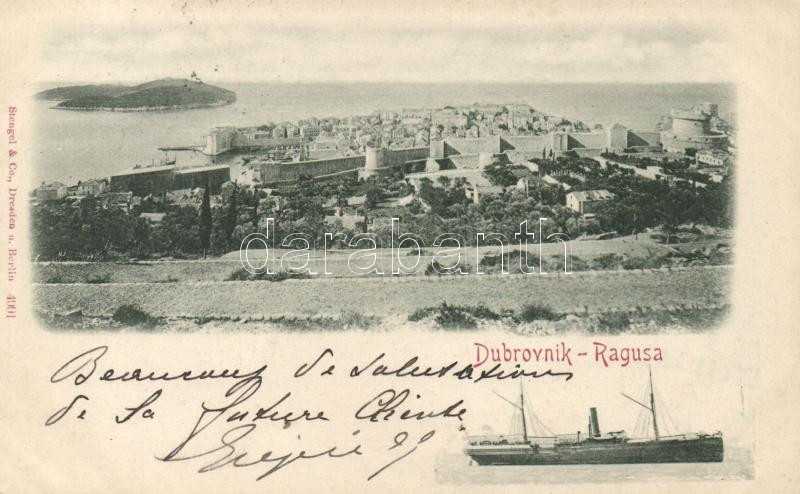 Stengel & Co., Dresden u. Berlin 4991
darabanth
Dubrovnik - Ragusa
Beaucoup de salutation
de Sa future Cliente